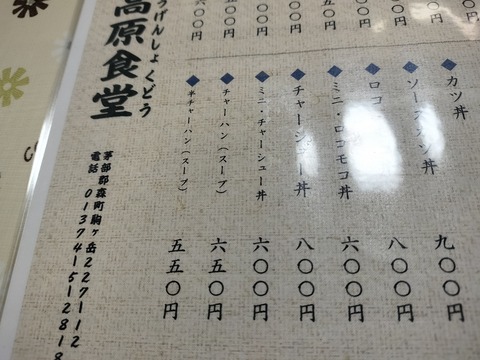 カツ丼
九〇〇円
ソースカツ丼
八〇〇円
ミニ・ロコモコ丼
六〇〇円
チャーシュー丼
八〇〇円
ミニ・チャーシュー丼
六〇〇円
チャーハン（スープ）
六五〇円
半チャーハン（スープ）
五五〇円
高原食堂
うげんしょくどう
茅部郡森町駒ヶ岳227-12
電話 01374-5-2818